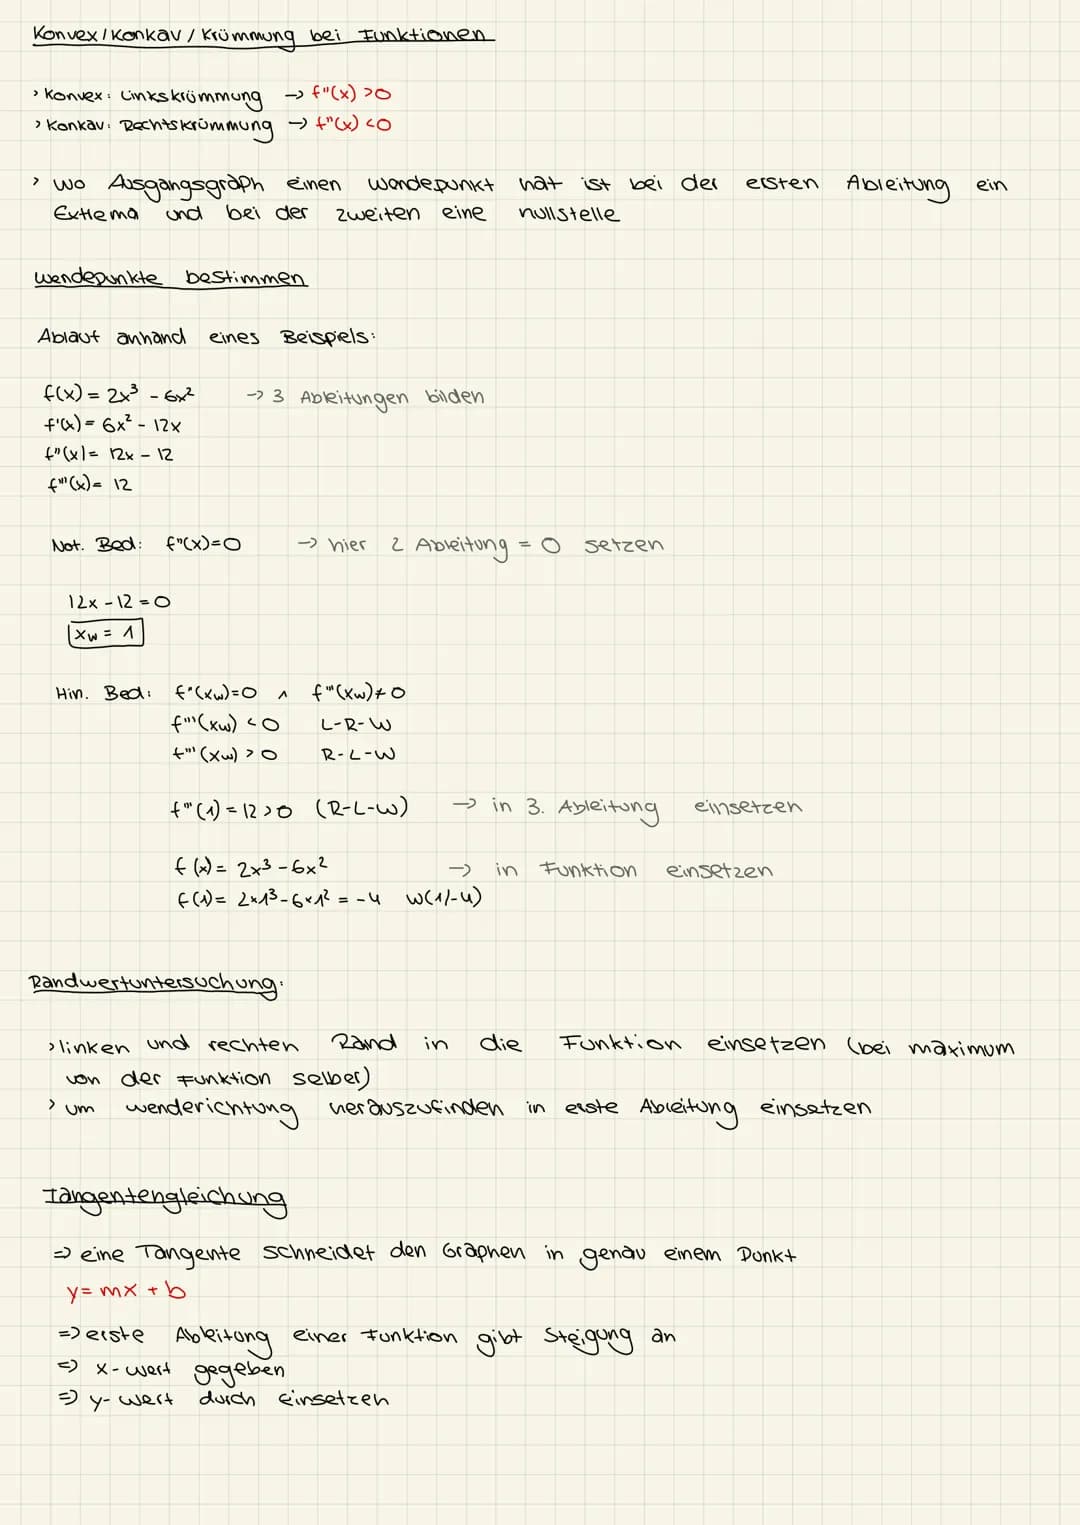 Konvex / Konkav / Krümmung bei Funktionen
> Konvex: Linkskrümmung -> f"(x) >0
> Konkav: Rechtskrümmung -> f"(x) <0
> wo Ausgangsgraph einen Wendepunkt hat ist bei der ersten Ableitung ein
Extrema und bei der zweiten eine nullstelle
Wendepunkte bestimmen
Ablauf anhand eines Beispiels:
f(x) = 2x³ - 6x² -> 3 Ableitungen bilden
f'(x) = 6x² - 12x
f"(x) = 12x - 12
f'''(x) = 12
Not. Bed: f"(x)=0 -> hier 2 Ableitung = 0 setzen
12x - 12 = 0
xw = 1
Hin. Bed: f"(xw)=0 ∧ f'''(xw)≠0
f'''(xw) <0 L-R-W
f'''(xw) >0 R-L-W
f'''(1) = 12 >0 (R-L-W) -> in 3. Ableitung einsetzen
f(x) = 2x³ - 6x² -> in Funktion einsetzen
f(1) = 2×1³ - 6×1² = -4 W(1/-4)
Randwertuntersuchung:
> linken und rechten Rand in die Funktion einsetzen (bei maximum
von der Funktion selber)
> um wenderichtung herauszufinden in erste Ableitung einsetzen
Tangentengleichung
=> eine Tangente schneidet den Graphen in genau einem Punkt
y = mx + b
=> erste Ableitung einer Funktion gibt Steigung an
=> x-wert gegeben
=> y-wert durch Einsetzen